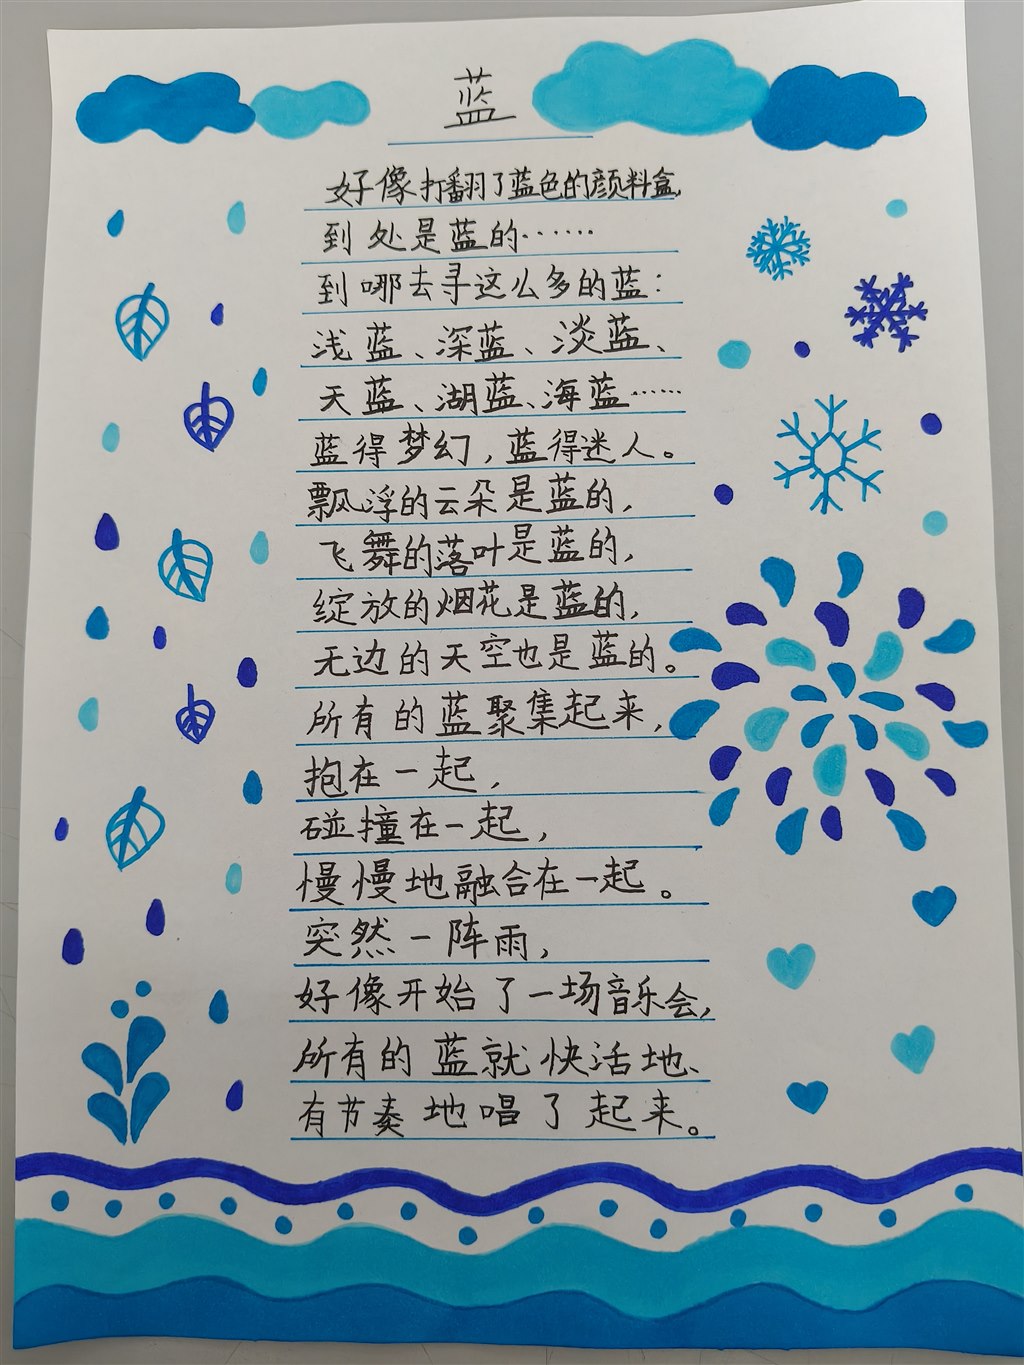 蓝
好像打翻了蓝色的颜料盒,
到处是蓝的……
到哪去寻这么多的蓝:
浅蓝、深蓝、淡蓝、
天蓝、湖蓝、海蓝……
蓝得梦幻,蓝得迷人。
飘浮的云朵是蓝的,
飞舞的落叶是蓝的,
绽放的烟花是蓝的,
无边的天空也是蓝的。
所有的蓝聚集起来,
抱在一起,
碰撞在一起,
慢慢地融合在一起。
突然一阵雨,
好像开始了一场音乐会,
所有的蓝就快活地、
有节奏地唱了起来。